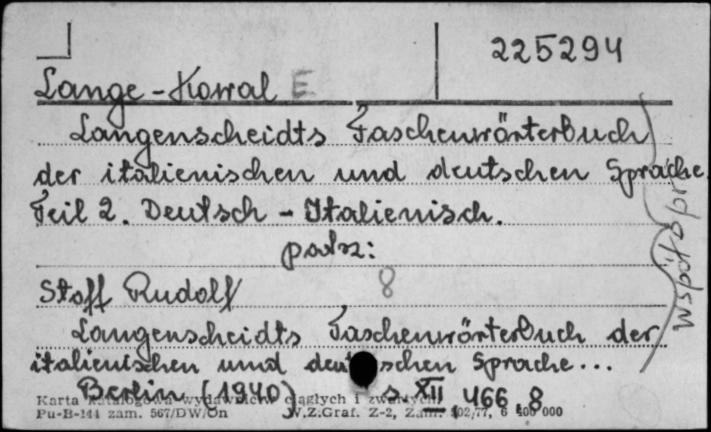 225294
Lange-Kowal E
Langenscheidts Taschenwörterbuch
der italienischen und deutschen Sprache.
Teil 2. Deutsch - Italienisch.
patrz:
Stoff Rudolf 8
Langenscheidts Taschenwörterbuch der
italienischen und deutschen Sprache...
Berlin (1940) s. XII, 466, 8
współspr
Karta katalogowa wydawnictw ciągłych i zwartych
Pu-B-144 zam. 567/DW/On W.Z.Graf. Z-2, Zam. 102/77, 6 400 000